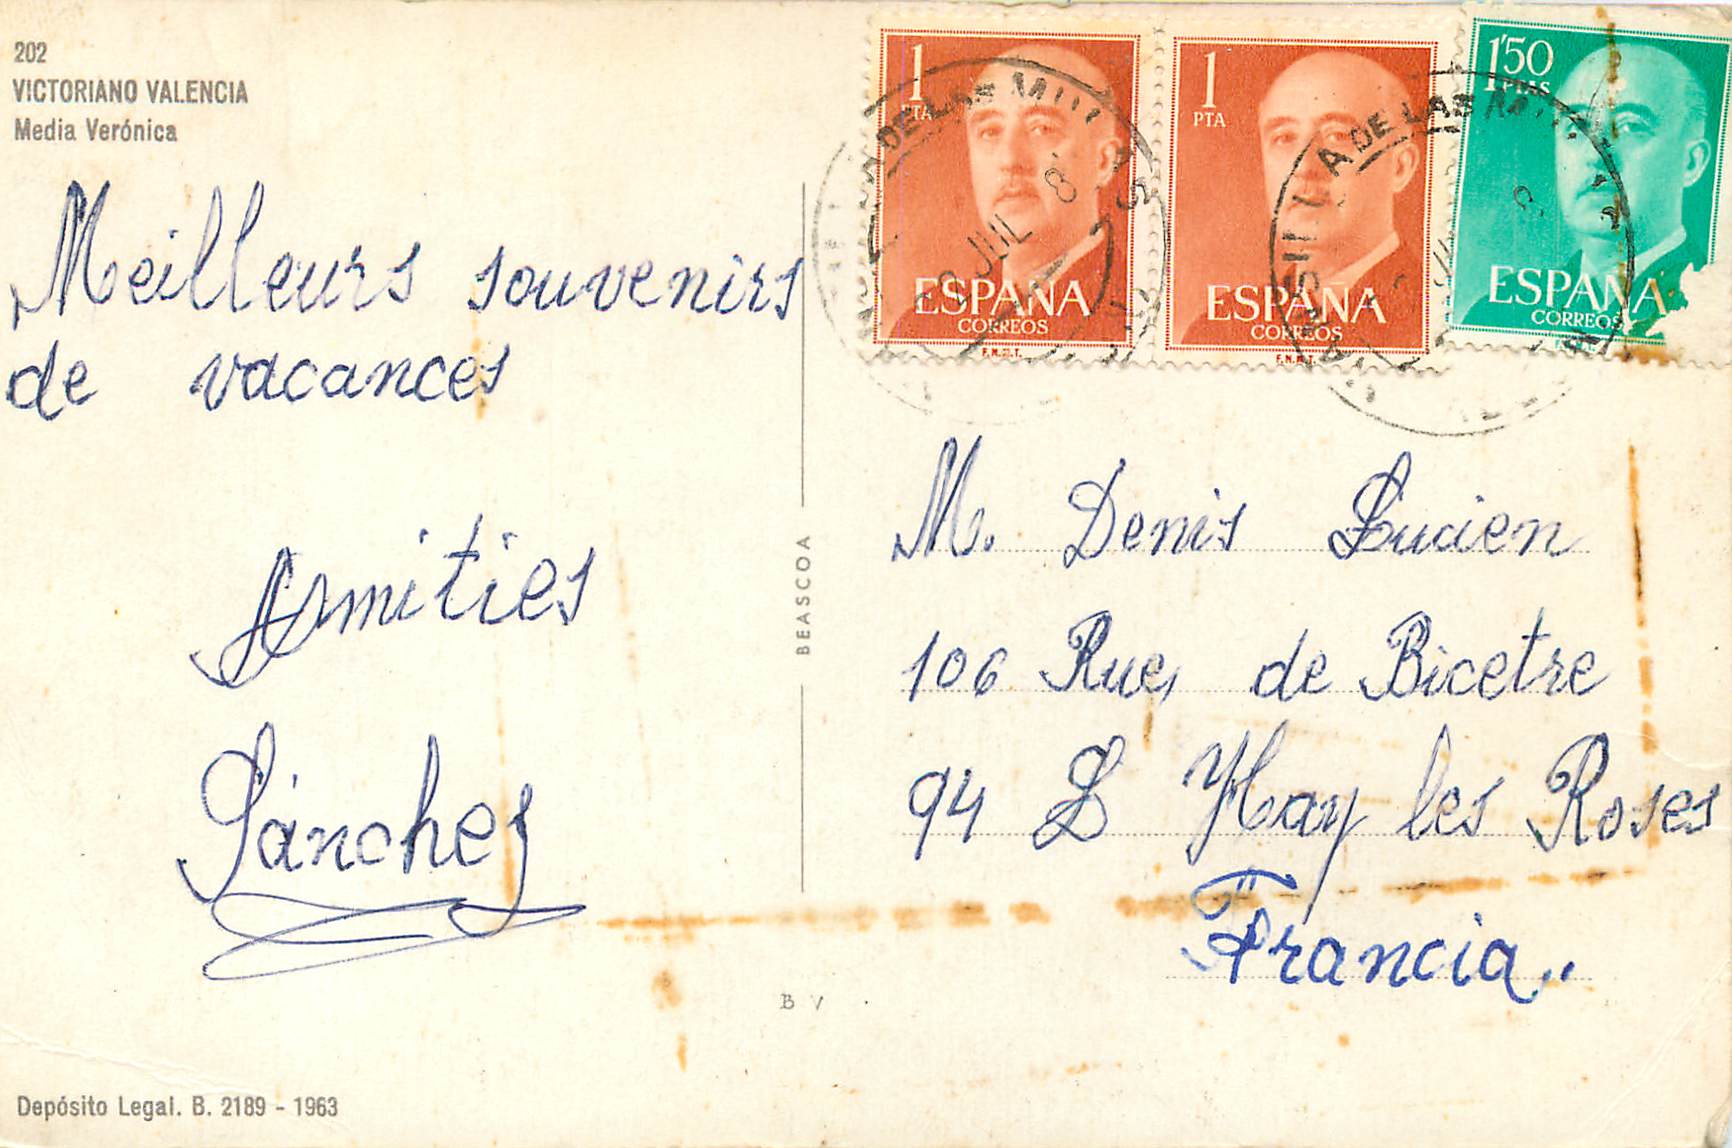 202
VICTORIANO VALENCIA
Media Verónica
Meilleurs souvenirs
de vacances
Amities
Sánchez
Depósito Legal. B. 2189 - 1963
BEASCOA
B V
1
PTA
ESPAÑA
CORREOS
F.N.M.T.
1
PTA
ESPAÑA
CORREOS
F.N.M.T.
1'50
PTAS
ESPAÑA
CORREOS
A DE LAS
JUL
8
SILLA DE LAS
M. Denis Lucien
106 Rue, de Bicetre
94 L Hay les Roses
Francia,,